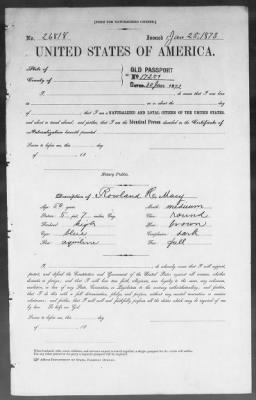 [FORM FOR NATURALIZED CITIZEN.]
No. 26818 Issued Jan 25, 1873
UNITED STATES OF AMERICA.
State of
County of
OLD PASSPORT
No. 17201
I, do swear that I was born
in on or about the day
of that I am a NATURALIZED AND LOYAL CITIZEN OF THE UNITED STATES,
and about to travel abroad; and further, that I am the Identical Person described in the Certificate of
Naturalization herewith presented.
Sworn to before me, this day
of 18
Notary Public.
Description of Rowland H. Macy
Age: 50 years. Mouth: medium
Stature: 5 feet 7 inches Eng. Chin: round
Forehead: high Hair: brown
Eyes: blue Complexion: dark
Nose: aquiline Face: full
I, do solemnly swear that I will support,
protect, and defend the Constitution and Government of the United States against all enemies, whether
domestic or foreign; and that I will bear true faith, allegiance, and loyalty to the same, any ordinance,
resolution, or law of any State, Convention, or Legislature to the contrary notwithstanding; and further,
that I do this with a full determination, pledge, and purpose, without any mental reservation or evasion
whatsoever; and further, that I will well and faithfully perform all the duties which may be required of me
by law: So help me God.
Sworn to before me, this day
of 18